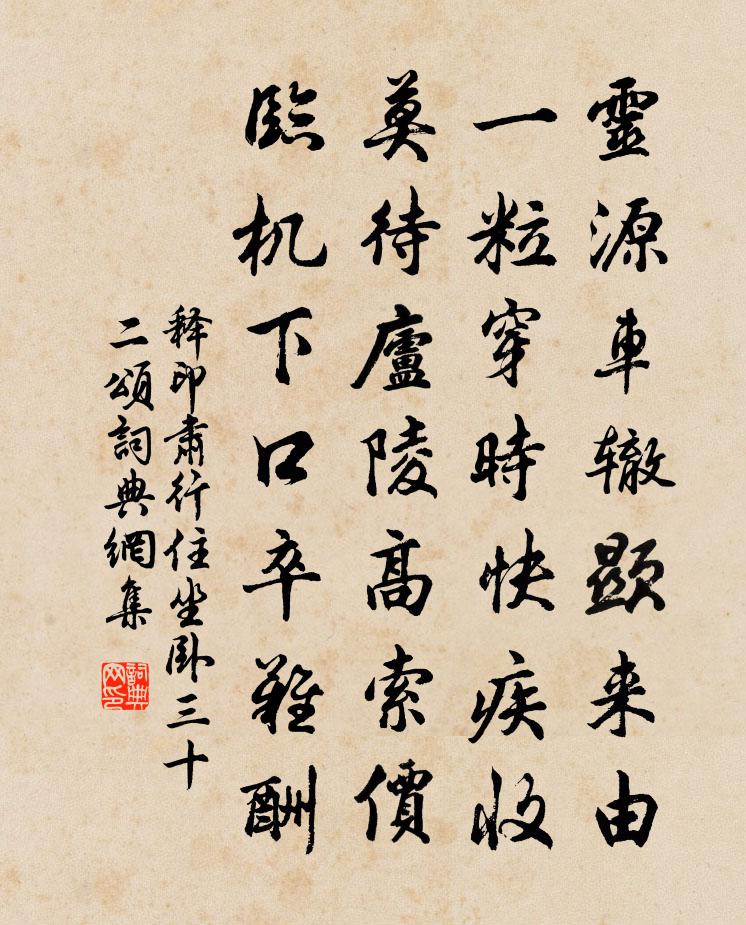 靈源車轍顯来由
一粒穿時快疾收
莫待廬陵高索價
臨机下口卒難酬
释印肅行住坐卧三十
二頌詞典網集
詞典网印